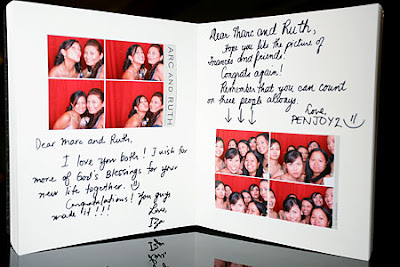 ARC AND RUTH
Dear Marc and Ruth,
I love you both! I wish for
more of God's Blessings for your
new life together.
Congratulations! You guys
made it!!!
Love,
Dear Marc and Ruth,
Hope you like the picture of
Frances and friends.
Congrats again!
Remember that you can count
on these people always.
Love,
PENJOY2